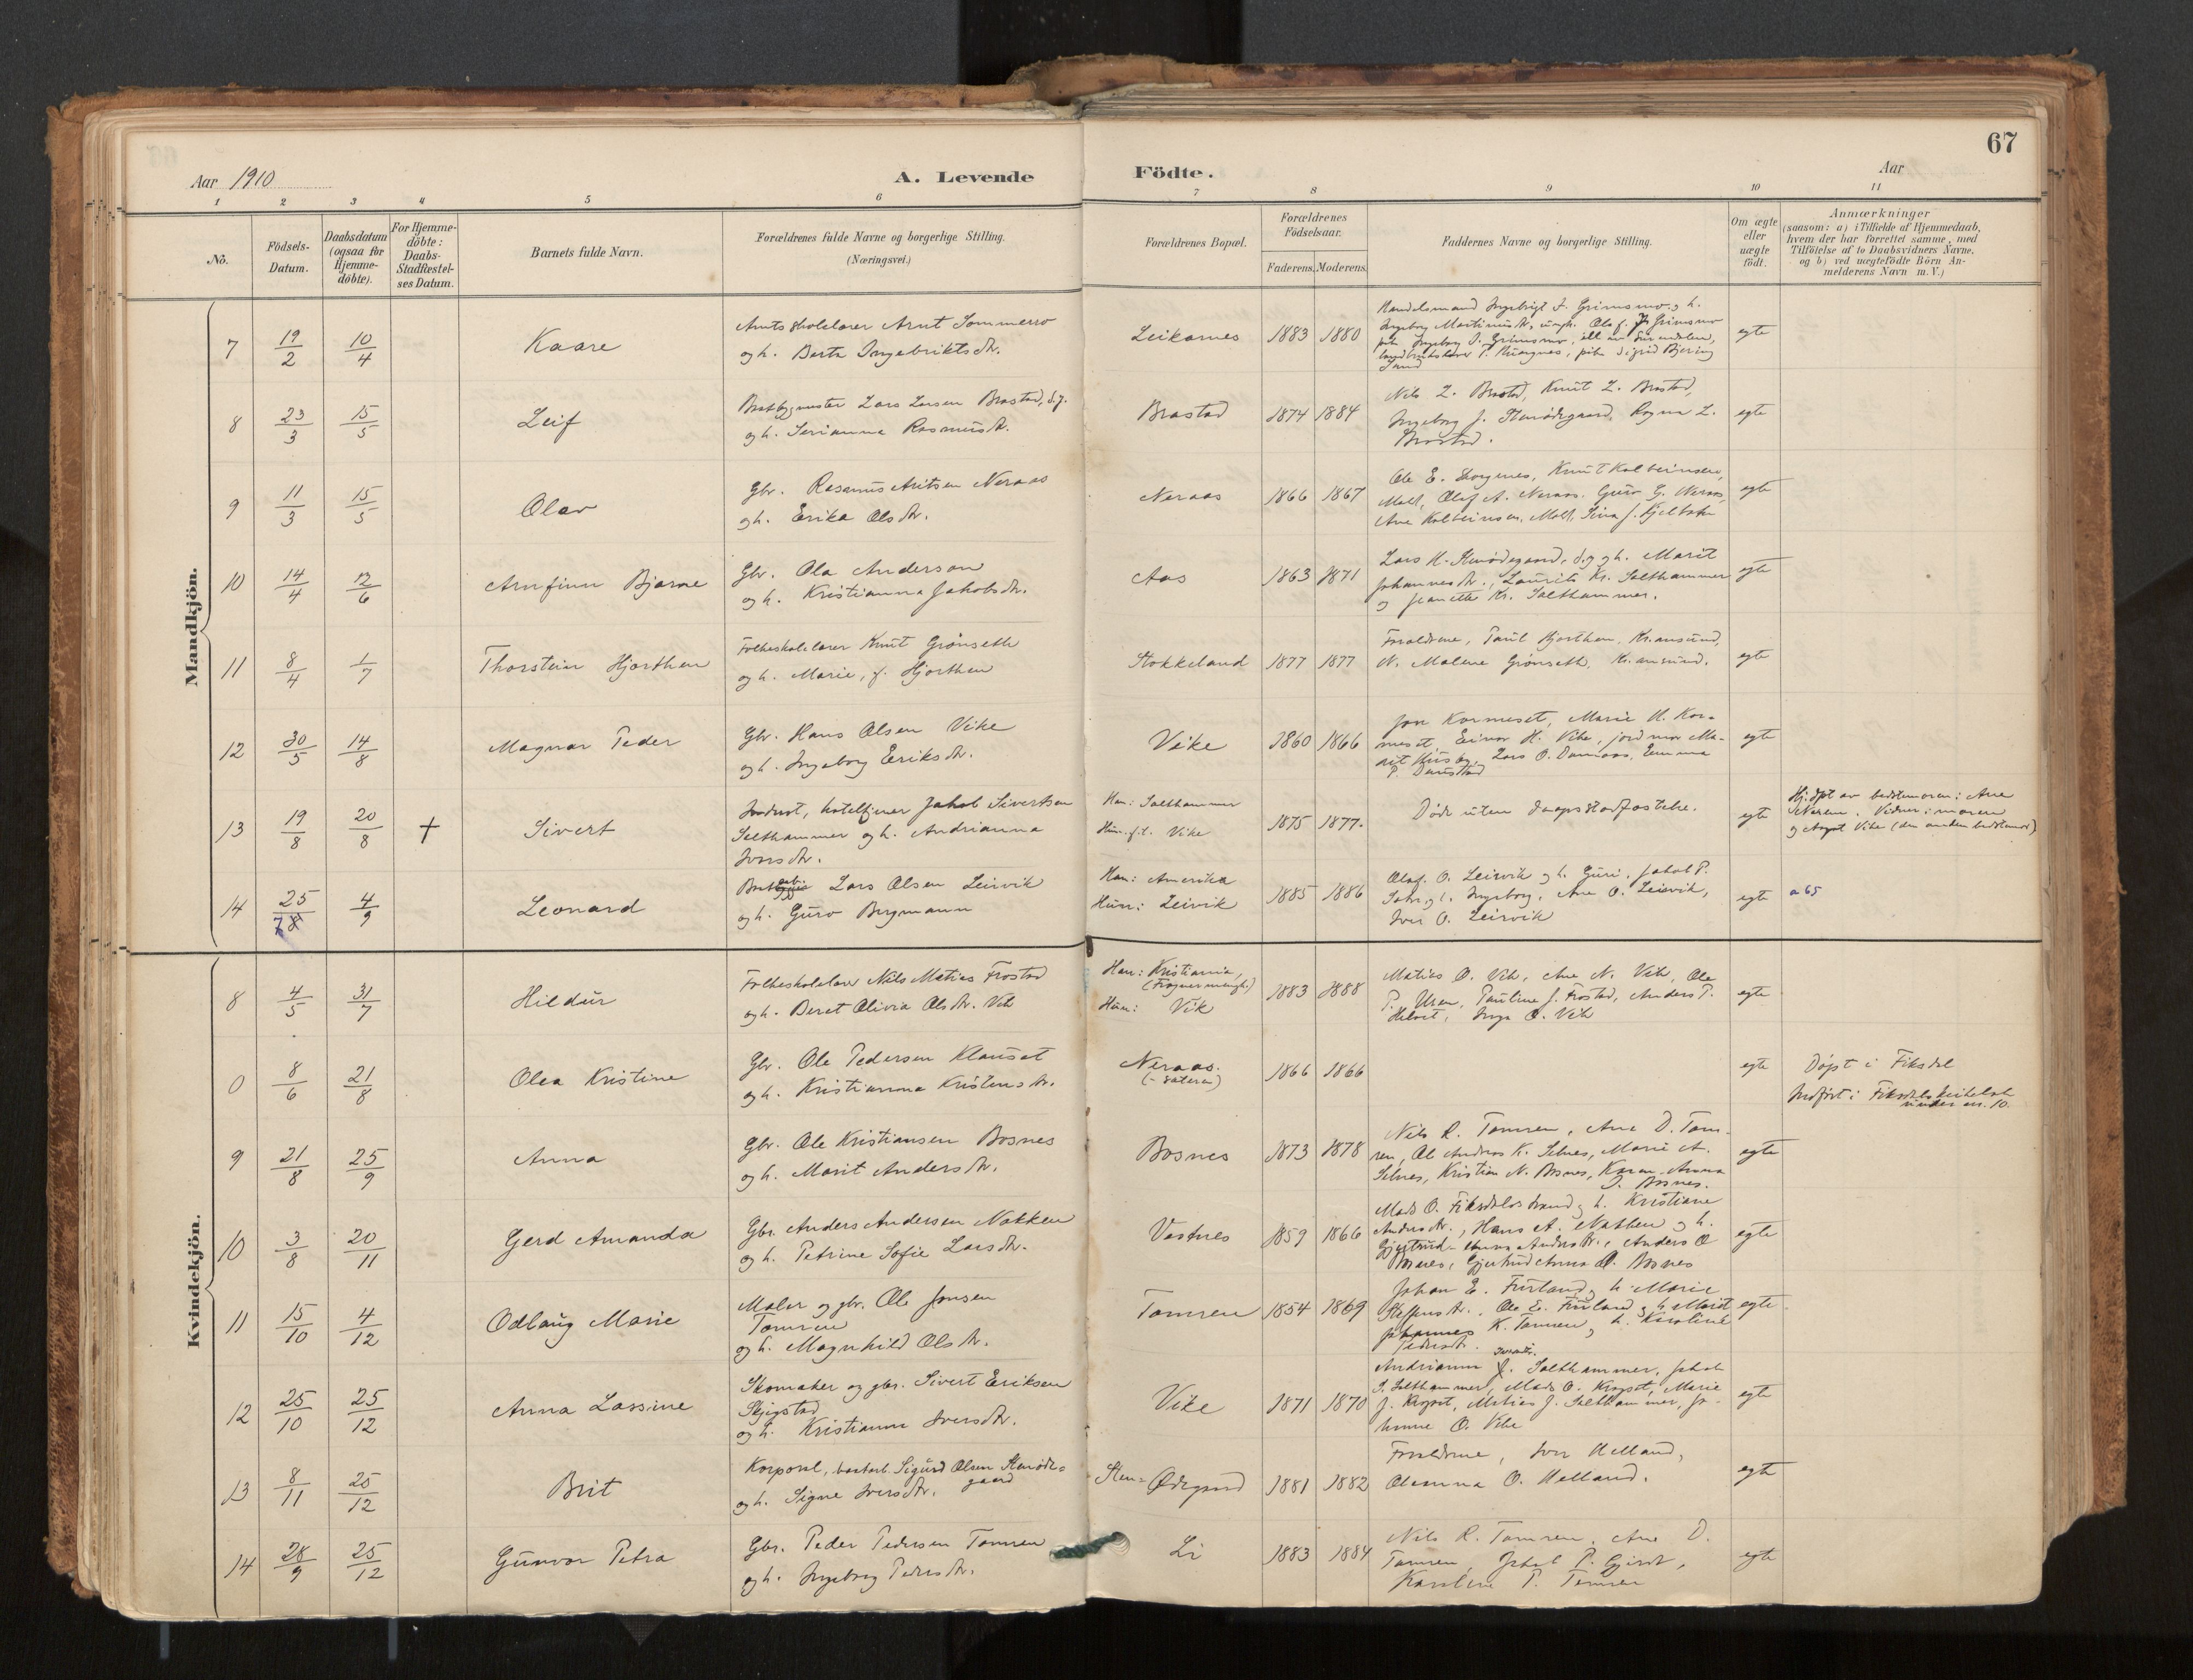 67
Aar 1910
A. Levende
Födte.
Aar
1 2 3 4 5 6 7 8 9 10 11
No.
Födsels-
Datum.
Daabsdatum
(ogsaa för
Hjemme-
döbte).
For Hjemme-
döbte:
Daabs-
Stadfæstel-
ses Datum.
Barnets fulde Navn.
Forældrenes fulde Navne og borgerlige Stilling.
(Næringsvei.)
Forældrenes Bopæl.
Forældrenes
Födselsaar.
Faderens.
Moderens.
Faddernes Navne og borgerlige Stilling.
Om ægte
eller
uægte
födt.
Anmærkninger
(saasom: a) i Tilfælde af Hjemmedaab,
hvem der har forrettet samme, med
Tilföielse af to Daabsvidners Navne.
og b) ved uægtefödte Börn An-
melderens Navn m. V.)
Mandkjön.
7 19/2 10/4 Kaare
Amtsskolelærer Arnt Sommerro
og h. Berta Ingebriktsdtr.
Leikarnes 1883 1880
Handelsmand Ingebrigt J. Grimsmo og h.
Ingeborg Martinusdtr., ungk. Olaf J. Grimsmo
pike Ingeborg J. Grimsmo, all av Surendalen,
pike Sigrid Bjering
Sund
egte
8 23/3 15/5 Leif
Lars Larsen Brastad, d.y.
og h. Serianna Rasmusdtr.
Brastad 1874 1884
Nils L. Brastad, Knut L. Brastad,
Ingeborg J. Stenødegaard, Ragna L.
Brastad.
egte
9 11/3 15/5 Olav
Gbr. Rasmus Aritsen Neraas
og h. Erika Olsdtr.
Neraas 1866 1867
Ole E. Sorgenes, Knut Kolbeinsen,
Moll, Olaf A. Neraas. Guro G. Neraas,
Ane Kolbeinsen, Moll,
egte
10 14/4 12/6 Arnfinn Bjarne
Gbr. Ola Anderson
og h. Kristianna Jakobsdtr.
Aas 1863 1871
Lars K. Stenødegaard, d.y. og h. Marit
Johannesdtr., Laurits Kr. Salthammer
og Jeanette Kr. Salthammer.
egte
11 8/4 1/7 Thorstein Hjorthen
Folkeskolelærer Knut Grønseth
og h. Marie, f. Hjorthen
Stokkeland 1877 1877
Forældrene, Paul Hjorthen, Kr.ansund,
N. Malene Grønseth, Kr.ansund.
egte
12 30/5 14/8 Magnar Peder
Gbr. Hans Olsen Vike
og h. Ingeborg Eriksdtr.
Vike 1860 1866
Jon Kormeset, Marie H. Kor-
meset, Einar H. Vike, jordmor Ma-
rit Husøy, Lars O. Damaas, Emma
P. Daustad
egte
13 19/8 20/8 † Sivert
hoteltjener Jakob Sivertsen
Salthammer og h. Andrianna
Iversdtr.
Han: Salthammer
Hun: f.t. Vike
1875 1877.
Døde uten daapsstadfæstelse.
egte
Hj.døpt av bedstemoren: Ane
Vidner: moren
og August Vike (den anden bedstemor)
14 25/7 8 4/9 Leonard
Lars Olsen Leirvik
og h. Guro Bergmann
Han: Amerika
Hun: Leirvik
1885 1886
Olaf O. Leirvik og h. Guri, Jakob P.
og h. Ingeborg, Ane O. Leirvik,
Iver O. Leirvik
egte
a 65
Kvindekjön.
8 4/5 31/7 Hildur
Folkeskolelærer Nils Matias Frostad
og h. Beret Olivia Olsdtr. Vik
Han: Kristiania,
(Frogner menigh.)
Hun: Vik
1883 1888
Matias O. Vik, Ane N. Vik, Ole
P. Uren, Pauline J. Frostad, Anders P.
Helset, Inga O. Vik
egte
0 8/6 21/8 Olea Kristine
Gbr. Ole Pedersen Klauset
og h. Kristianna Kristensdtr.
Neraas.
(-sætern)
1866 1866
egte
Døpt i Fiksdal
Indført i Fiksdals kirkebok
under nr. 10.
9 21/8 25/9 Anna
Gbr. Ole Kristiansen Bosnes
og h. Marit Andersdtr.
Bosnes 1873 1878
Nils R. Tomren, Ane D. Tom-
ren, Ol Andreas K. Selnes, Marie A.
Selnes, Kristian N. Bosnes, Karen Anna
O. Bosnes.
egte
10 3/8 20/11 Gerd Amanda
Gbr. Anders Andersen Nakken
og h. Petrine Sofie Larsdtr.
Vestnes 1859 1866
Mads O. Fiksdalsstrand og h. Kristiane
Andersdtr., Hans A. Nakken og h.
Gjertrud Anna Andersdtr., Anders O
Bosnes, Gjertrud Anna O. Bosnes
egte
11 15/10 4/12 Odlaug Marie
Maler og gbr. Ole Jonsen
Tomren
og h. Magnhild Olsdtr.
Tomren 1854 1869
Johan E. Furland og h. Marie
Steffensdtr., Ole E. Furland og h. Marit
Johannes K. Tomren og h. Karoline
Pedersdtr.
egte
12 25/10 25/12 Anna Lassine
Skomaker og gbr. Sivert Eriksen
Skjegstad
og h. Kristianna Iversdtr.
Vike 1871 1870
Andrianna Iversdtr. Salthammer, Jakob
S. Salthammer, Mads O. Kropset, Marie
J. Kropset, Matias J. Salthammer, Jo-
hanne O. Vike
egte
13 8/11 25/12 Brit
Korporal, Sigurd Olsen Stenøde-
gaard
og h. Signe Iversdtr.
Sten-Ødegaard 1881 1882
Forældrene, Iver Helland,
Olianna O. Helland.
egte
14 28/9 25/12 Gunvor Petra
Gbr. Peder Pedersen Tomren
og h. Ingeborg Pedersdtr.
Li 1883 1884
Nils R. Tomren, Ane D.
Tomren, Jakob P. Gjerde,
Karoline P. Tomren
egte